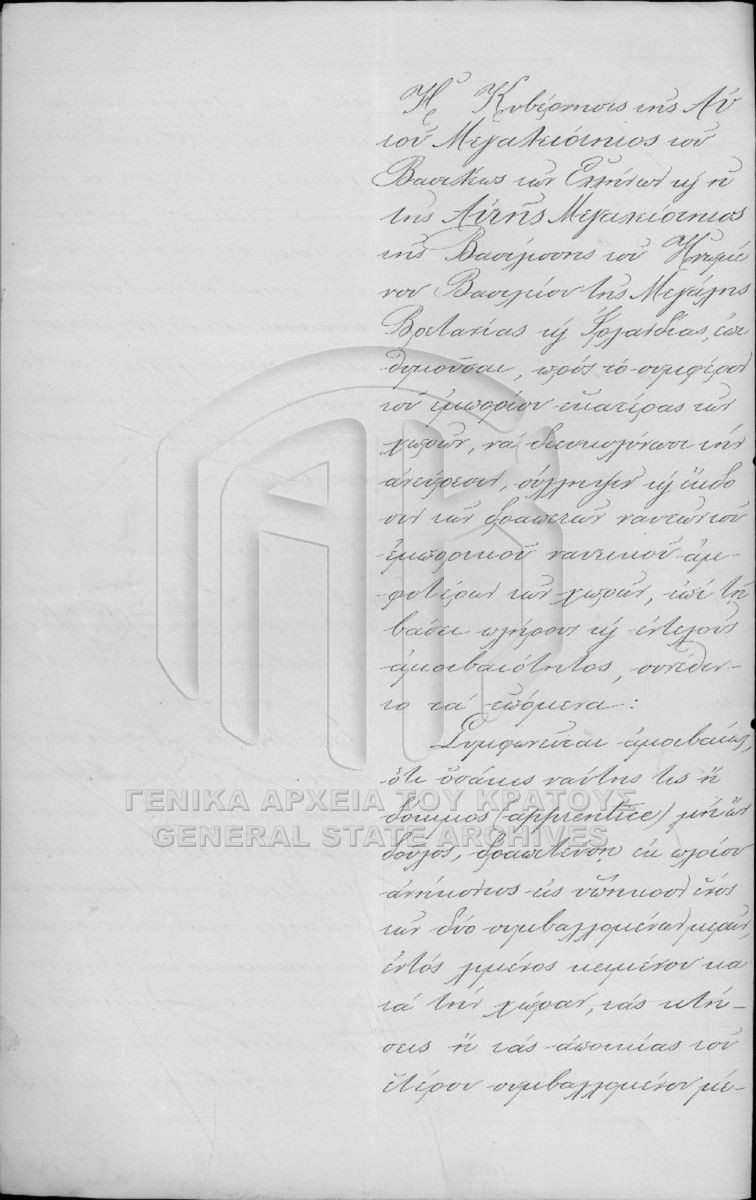 Ἡ Κυβέρνησις τῆς Αὐ
τοῦ Μεγαλειότητος τοῦ
Βασιλέως τῶν Ἑλλήνων κ ἡ
τῆς Αὐτῆς Μεγαλειότητος
τῆς Βασιλίσσης τοῦ Ἡνωμέ
νου Βασιλείου τῆς Μεγάλης
Βρεττανίας κ Ἰρλανδίας, ἐπι
θυμοῦσαι, πρὸς τὸ συμφέρον
τοῦ ἐμπορίου ἑκατέρας τῶν
χωρῶν, νὰ διευκολύνωσι τὴν
ἀνεύρεσιν, σύλληψιν κ ἔκδο
σιν τῶν δραπετῶν ναυτῶν τοῦ
ἐμπορικοῦ ναυτικοῦ ἀμ-
φοτέρων τῶν χωρῶν, ἐπὶ τῇ
βάσει πλήρους κ ἐντελοῦς
ἀμοιβαιότητος, συνέθεν-
το τὰ ἑπόμενα:
Συμφωνεῖται ἀμοιβαίως,
ὅτι ὁσάκις ναύτης τις ἢ
δόκιμος (apprentice) μὴ ὢν
δοῦλος, δραπετεύσῃ ἐκ πλοίου
ἀνήκοντος εἰς ὑπήκοον ἑνὸς
τῶν δύο συμβαλλομένων μερῶν,
ἐντὸς λιμένος κειμένου κα
τὰ τὴν χώραν, τὰς κτή-
σεις ἢ τὰς ἀποικίας τοῦ
ἑτέρου συμβαλλομένου μέ-
ΓΕΝΙΚΑ ΑΡΧΕΙΑ ΤΟΥ ΚΡΑΤΟΥΣ
GENERAL STATE ARCHIVES